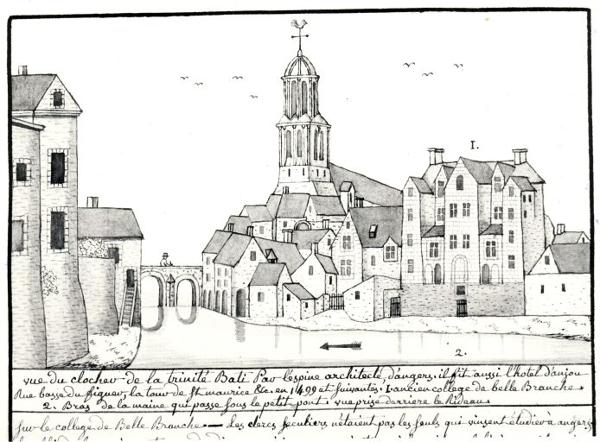 1.
2.
vue du clocher de la trinité Bati Par lespine architecte d'angers. il fit aussi l'hotel d'anjou
Rue basse du figuier, la tour de St. maurice &c. en 1499 et suivantes. 1. ancien college de belle Branche.
2. Bras de la maine qui passe sous le petit pont. vue prise derriere le Rideau.
sur le college de Belle Branche — les clercs seculiers n'etaient pas les seuls qui vinsent étudier a angers